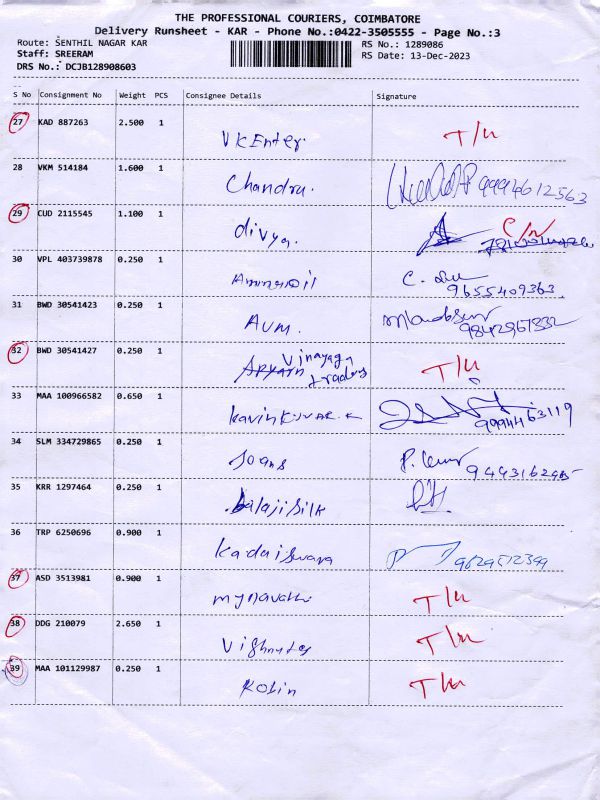 THE PROFESSIONAL COURIERS, COIMBATORE
Delivery Runsheet - KAR - Phone No.:0422-3505555 - Page No.:3
Route: SENTHIL NAGAR KAR RS No.: 1289086
Staff: SREERAM RS Date: 13-Dec-2023
DRS No.: DCJB128908603
S No Consignment No Weight PCS Consignee Details Signature
27 KAD 887263 2.500 1 VKEnter. T/U
28 VKM 514184 1.600 1 Chandru. 9994612563
29 CUD 2115545 1.100 1 divya.
30 VPL 403739878 0.250 1 9655409363
31 BWD 30541423 0.250 1 AVM.
32 BWD 30541427 0.250 1 Vinayaga traders T/U
33 MAA 100966582 0.650 1 kavinkumar.k 9994463119
34 SLM 334729865 0.250 1 Joans
35 KRR 1297464 0.250 1 balajisilk
36 TRP 6250696 0.900 1 kadaiswara 9629512399
37 ASD 3513981 0.900 1 T/U
38 DDG 210079 2.650 1 T/U
39 MAA 101129987 0.250 1 Robin T/U